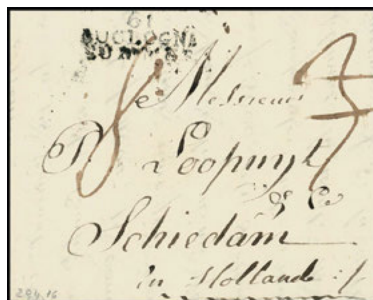 61
BOULOGNE
SUR MER
Messieurs
P. Loopuyt
& Co
Schiedam
in Hollande
294.16